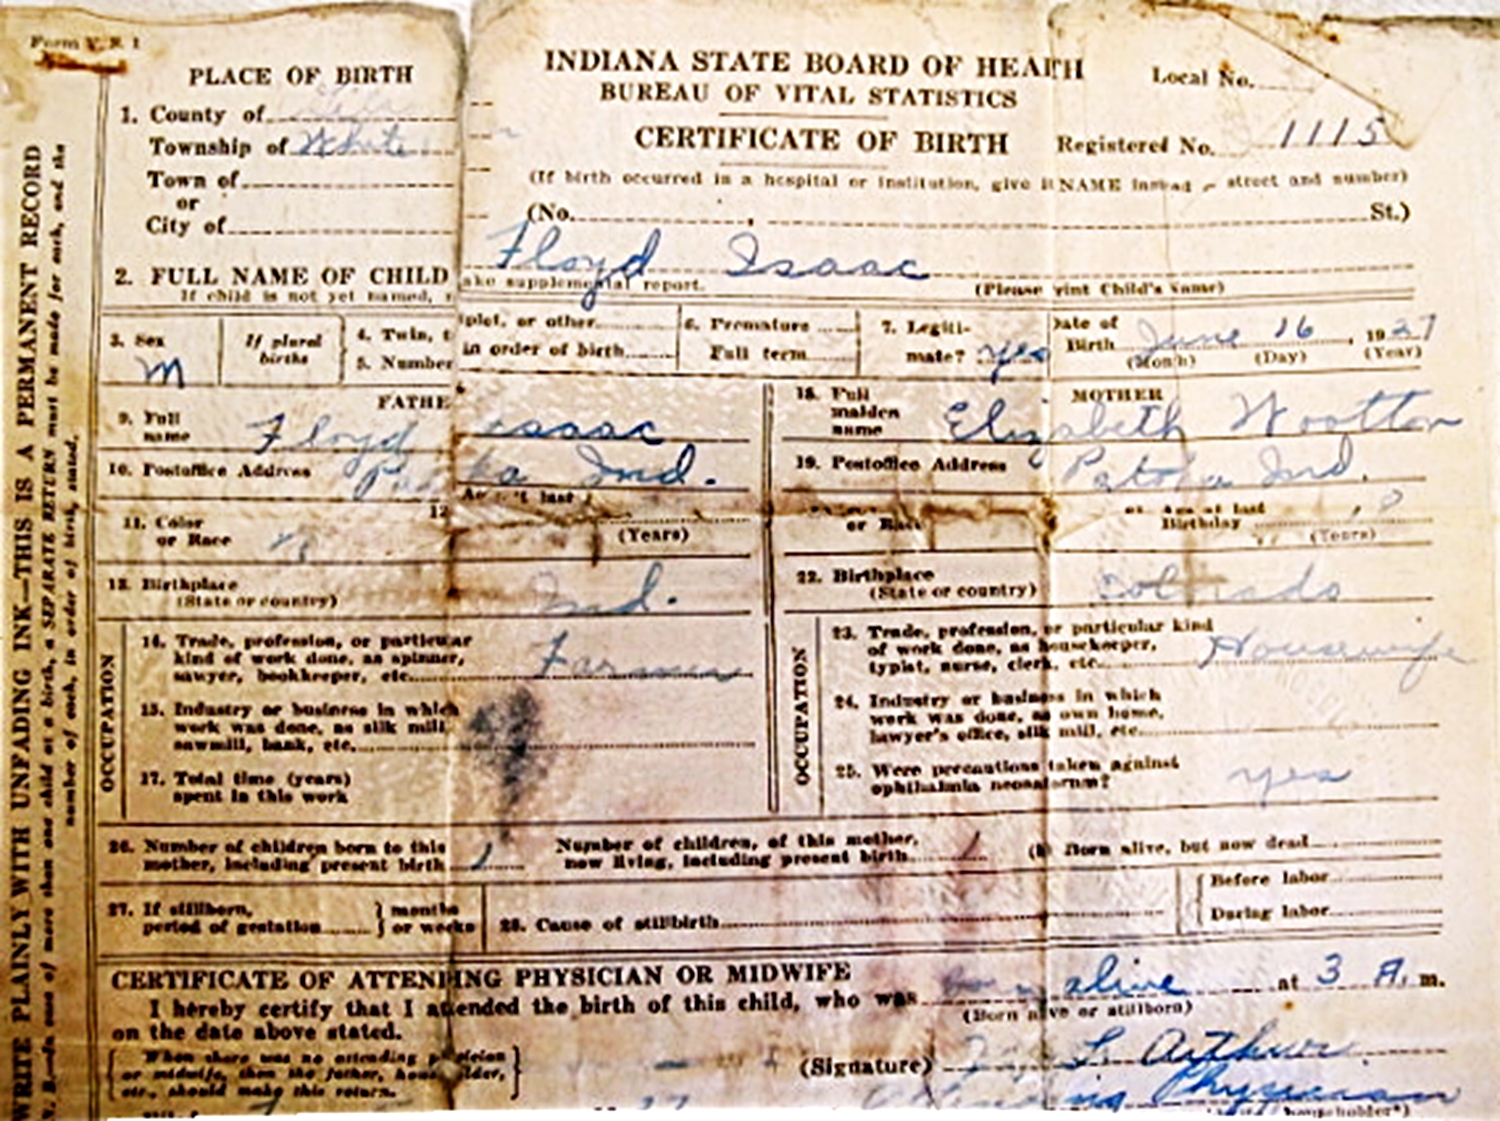 Form V. S. 1
INDIANA STATE BOARD OF HEALTH
BUREAU OF VITAL STATISTICS
CERTIFICATE OF BIRTH
Local No.
Registered No. 1115
PLACE OF BIRTH
1. County of
Township of White
Town of
or
City of
(If birth occurred in a hospital or institution, give NAME street and number)
(No. , St.)
2. FULL NAME OF CHILD Floyd Isaac
If child is not yet named, make supplemental report. (Please print Child's Name)
3. Sex M
If plural births
4. Twin, triplet, or other
5. Number in order of birth
6. Premature
Full term
7. Legitimate? yes
Date of Birth June 16, 1927
(Month) (Day) (Year)
FATHER
9. Full name Floyd Isaac
10. Postoffice Address Patoka Ind.
11. Color or Race
12 Age at last
(Years)
13. Birthplace (State or country) Ind.
OCCUPATION
14. Trade, profession, or particular kind of work done, as spinner, sawyer, bookkeeper, etc. Farmer
15. Industry or business in which work was done, as silk mill, sawmill, bank, etc.
17. Total time (years) spent in this work
MOTHER
18. Full maiden name Elizabeth Wootton
19. Postoffice Address Patoka Ind.
or Race
Age at last Birthday
(Years)
22. Birthplace (State or country) Colorado
OCCUPATION
23. Trade, profession, or particular kind of work done, as housekeeper, typist, nurse, clerk, etc. Housewife
24. Industry or business in which work was done, as own home, lawyer's office, silk mill, etc.
25. Were precautions taken against ophthalmia neonatorum? yes
26. Number of children born to this mother, including present birth 1
Number of children, of this mother, now living, including present birth 1
(b) Born alive, but now dead
27. If stillborn, period of gestation } months or weeks
28. Cause of stillbirth
Before labor
During labor
CERTIFICATE OF ATTENDING PHYSICIAN OR MIDWIFE
I hereby certify that I attended the birth of this child, who was born alive at 3 A. m.
(Born alive or stillborn)
on the date above stated.
When there was no attending physician or midwife, then the father, householder, etc., should make this return.
(Signature) L. Arthur
Attending Physician
householder*)
WRITE PLAINLY WITH UNFADING INK—THIS IS A PERMANENT RECORD
N. B.—In case of more than one child at a birth, a SEPARATE RETURN must be made for each, and the
number of each, in order of birth, stated.